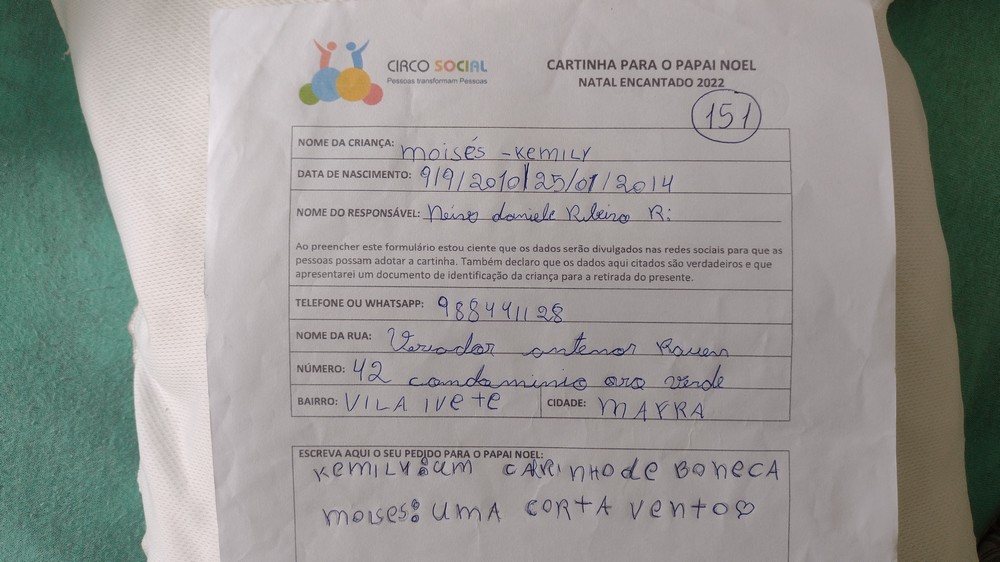 CIRCO SOCIAL
Pessoas transformam Pessoas
CARTINHA PARA O PAPAI NOEL
NATAL ENCANTADO 2022
151
NOME DA CRIANÇA: Moisés - Kemily
DATA DE NASCIMENTO: 9/9/2010/25/01/2014
NOME DO RESPONSÁVEL: daniele Ribeiro R:
Ao preencher este formulário estou ciente que os dados serão divulgados nas redes sociais para que as
pessoas possam adotar a cartinha. Também declaro que os dados aqui citados são verdadeiros e que
apresentarei um documento de identificação da criança para a retirada do presente.
TELEFONE OU WHATSAPP: 988491128
NOME DA RUA: Vereador antenor
NÚMERO: 42 condominio oro verde
BAIRRO: VILA IVETE CIDADE: MAFRA
ESCREVA AQUI O SEU PEDIDO PARA O PAPAI NOEL:
KEMILY: UM CARRINHO de BONECA
MOISES: UMA CORTA VENTO